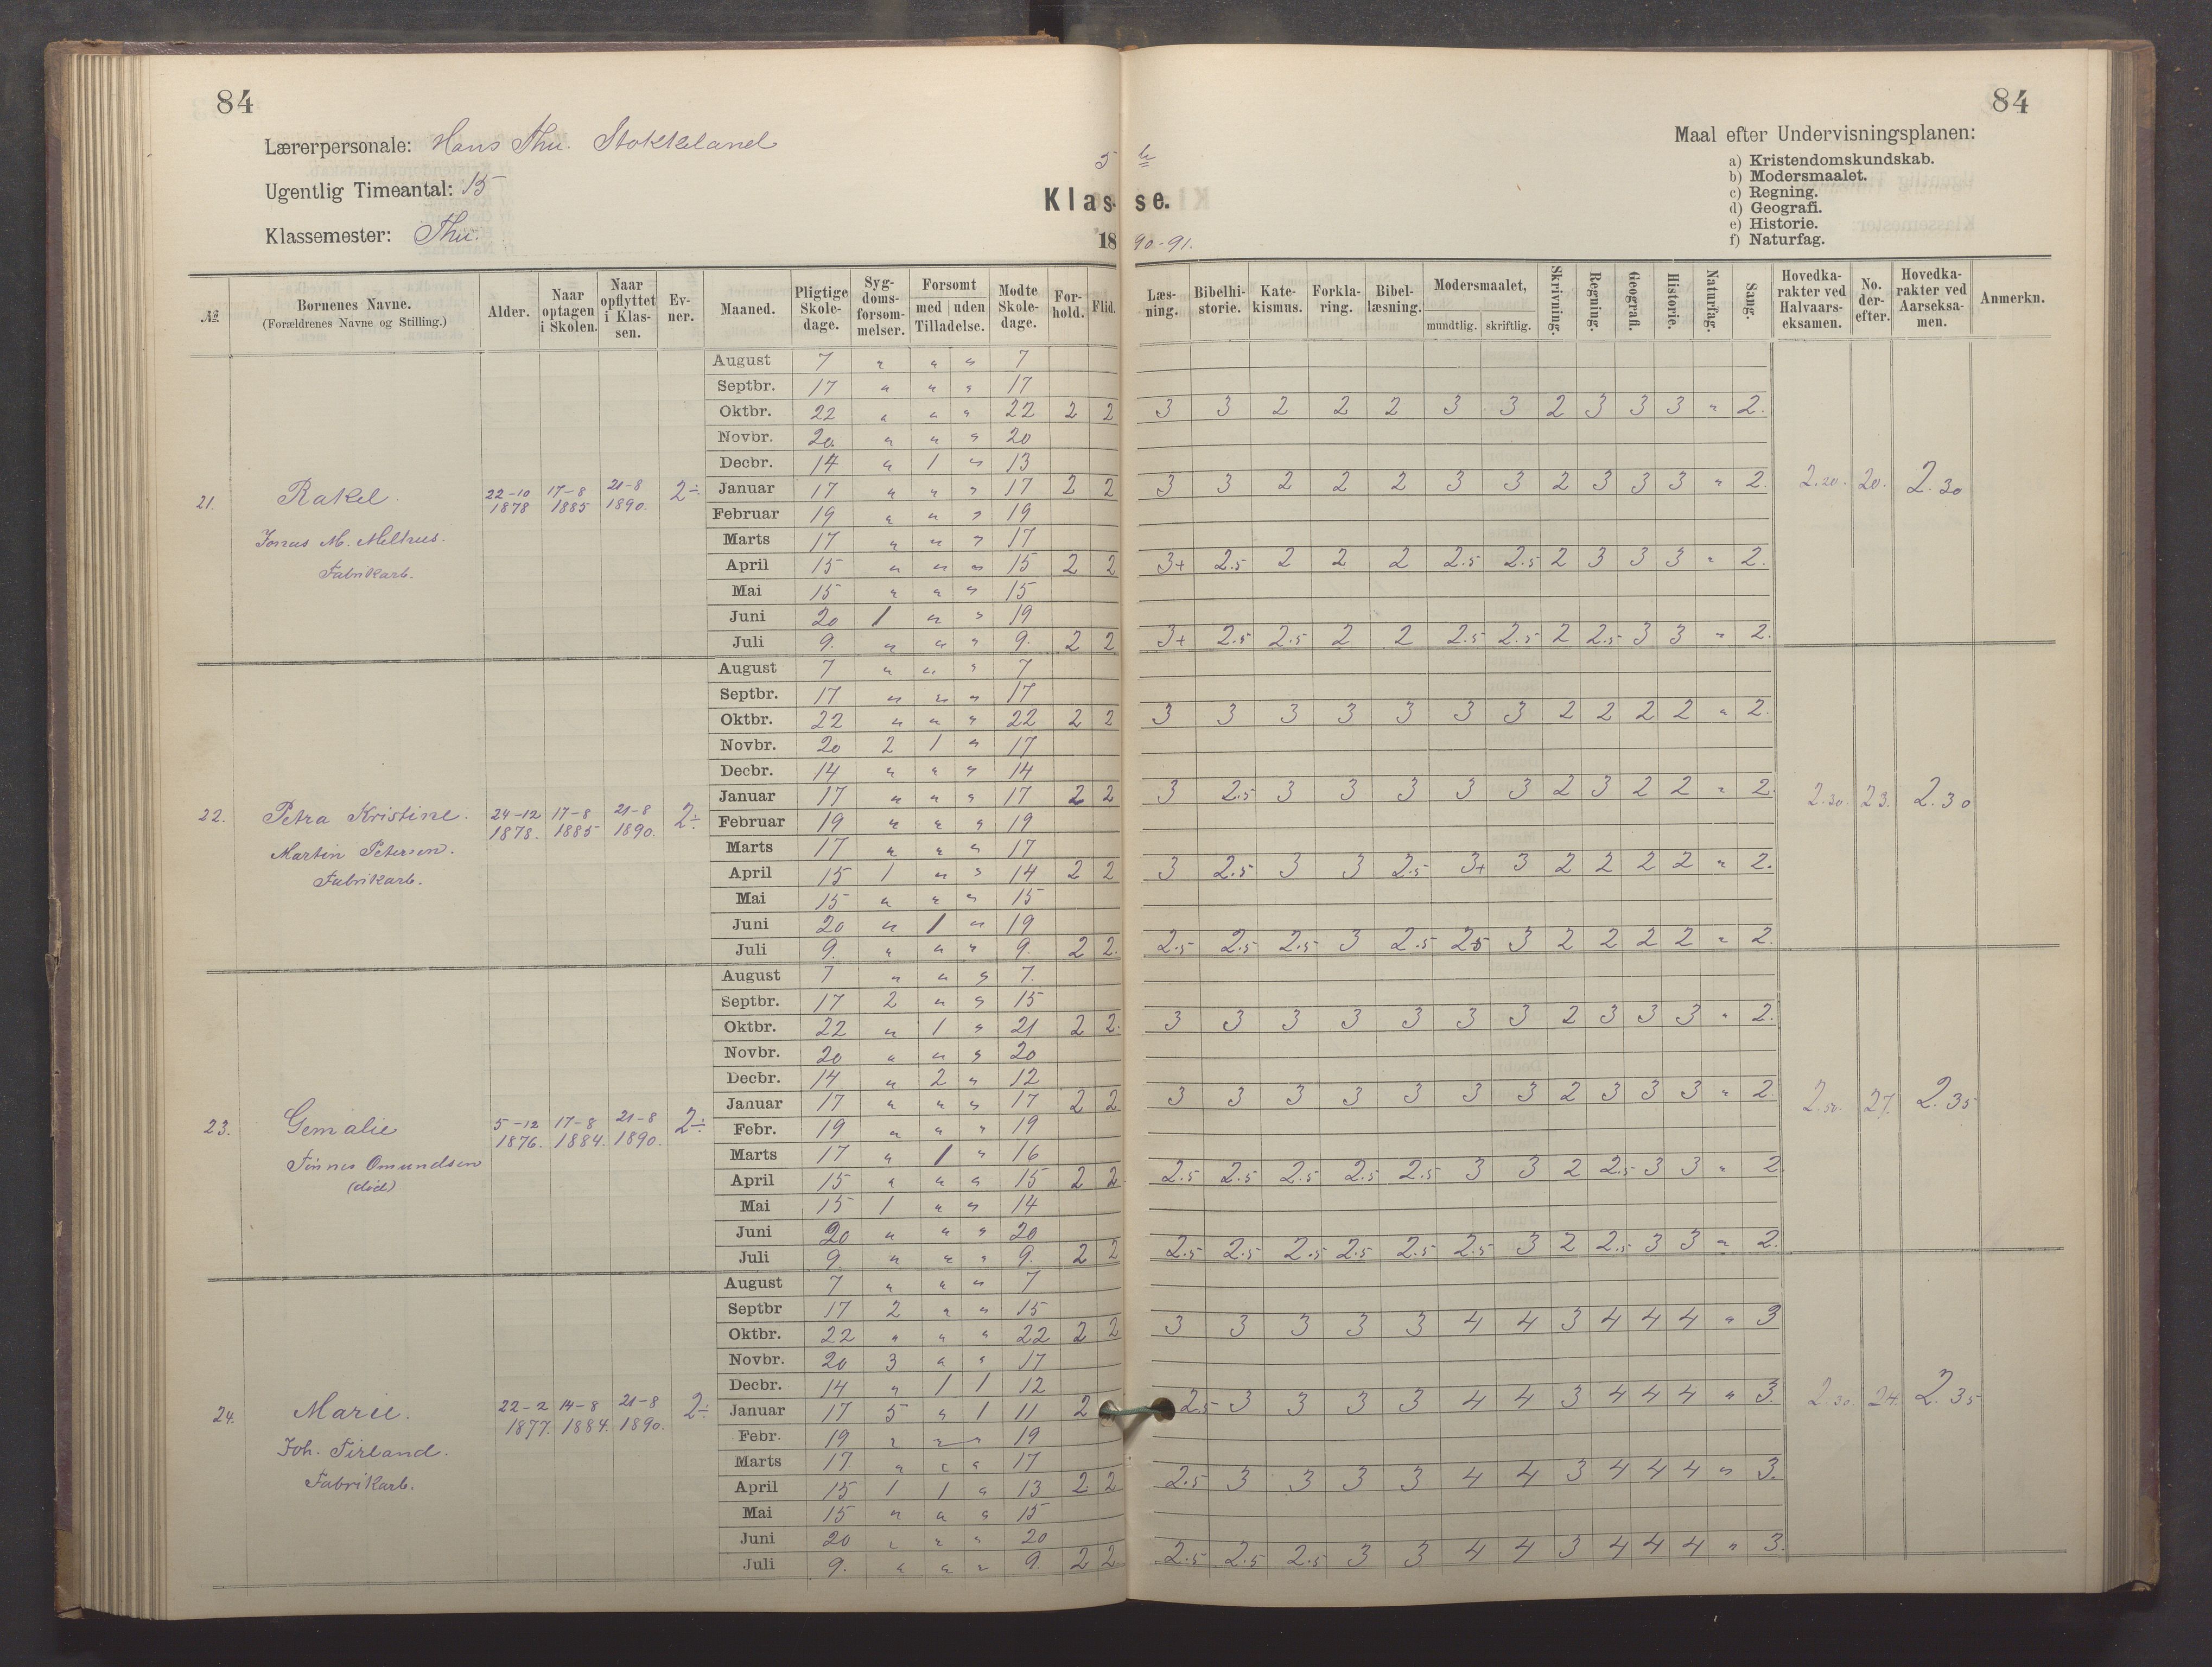 84
84
Lærerpersonale: Hans Thu. Stokkeland
Ugentlig Timeantal: 15
Klassemester: Thu.
5 te
Klas-se.
1890-91.
Maal efter Undervisningsplanen:
a) Kristendomskundskab.
b) Modersmaalet.
c) Regning.
d) Geografi.
e) Historie.
f) Naturfag.
№ | Børnenes Navne. (Forældrenes Navne og Stilling.) | Alder. | Naar optagen i Skolen. | Naar opflyttet i Klas-sen. | Ev-ner. | Maaned. | Pligtige Skole-dage. | Syg-doms-forsøm-melser. | Forsømt med uden Tilladelse. | Mødte Skole-dage. | For-hold. | Flid. | Læs-ning. | Bibelhi-storie. | Kate-kismus. | Forkla-ring. | Bibel-læsning. | Modersmaalet, mundtlig. skriftlig. | Skrivning. | Regning. | Geografi. | Historie. | Naturfag. | Sang. | Hovedka-rakter ved Halvaars-eksamen. | No. der-efter. | Hovedka-rakter ved Aarseksa-men. | Anmerkn.
21. Rakel. 22-10 1878 17-8 1885 21-8 1890. 2÷
Jonas M. Melhus.
Fabrikarb.
August 7 " " " 7
Septbr. 17 " " " 17
Oktbr. 22 " " " 22 2 2 3 3 2 2 2 3 3 2 3 3 3 " 2.
Novbr. 20. " " " 20
Decbr. 14 " 1 " 13
Januar 17 " " " 17 2 2 3 3 2 2 2 3 3 2 3 3 3 " 2. 2.20. 20. 2.30
Februar 19 " " " 19
Marts 17 " " " 17
April 15 " " " 15 2 2 3+ 2.5 2 2 2 2.5 2.5 2 3 3 3 " 2.
Mai 15 " " " 15
Juni 20 1 " " 19
Juli 9. " " " 9. 2 2 3+ 2.5 2.5 2 2 2.5 2.5 2 2.5 3 3 " 2.
22. Petra Kristine. 24-12 1878. 17-8 1885 21-8 1890. 2÷
Martin Petersen.
Fabrikarb.
August 7 " " " 7
Septbr. 17 " " " 17
Oktbr. 22 " " " 22 2 2 3 3 3 3 3 3 3 2 2 2 2 " 2.
Novbr. 20 2 1 " 17
Decbr. 14 " " " 14
Januar 17 " " " 17 2 2 3 2.5 3 3 3 3 3 2 3 2 2 " 2. 2.30. 23. 2.30
Februar 19 " " " 19
Marts 17 " " " 17
April 15 1 " " 14 2 2 3 2.5 3 3 2.5 3+ 3 2 2 2 2 " 2.
Mai 15 " " " 15
Juni 20 " 1 " 19
Juli 9. " " " 9. 2 2. 2.5 2.5 2.5 3 2.5 2.5 3 2 2 2 2 " 2.
23. Gemalie 5-12 1876. 17-8 1884. 21-8 1890. 2÷
Tønnes Omundsen
(død)
August 7 " " " 7.
Septbr. 17 2 " " 15
Oktbr. 22 " 1 " 21 2 2. 3 3 3 3 3 3 3 2 3 3 3 " 2.
Novbr. 20 " " " 20
Decbr. 14 " 2 " 12
Januar 17 " " " 17 2 2 3 3 3 3 3 3 3 2 3 3 3 " 2. 2.50. 27. 2.35
Febr. 19 " " " 19
Marts 17 " 1 " 16
April 15 " " " 15 2 2 2.5 2.5 2.5 2.5 2.5 3 3 2 2.5 3 3 " 2
Mai 15 1 " " 14
Juni 20 " " " 20
Juli 9. " " " 9. 2 2 2.5 2.5 2.5 2.5 2.5 2.5 3 2 2.5 3 3 " 2.
24. Marie. 22-2 1877. 14-8 1884. 21-8 1890. 2÷
Joh. Tirland.
Fabrikarb.
August 7 " " " 7
Septbr 17 2 " " 15
Oktbr. 22 " " " 22 2 2 3 3 3 3 3 4 4 3 4 4 4 " 3
Novbr. 20 3 " " 17
Decbr. 14 " 1 1 12
Januar 17 5 " 1 11 2 2.5 3 3 3 3 4 4 3 4 4 4 " 3. 2.30. 24. 2.35
Febr. 19 " " " 19
Marts 17 " " " 17
April 15 1 1 " 13 2 2 2.5 3 3 3 3 4 4 3 4 4 4 " 3.
Mai 15 " " " 15
Juni 20 " " " 20
Juli 9. " " " 9. 2 2 2.5 2.5 2.5 3 3 4 4 3 4 4 4 " 3.